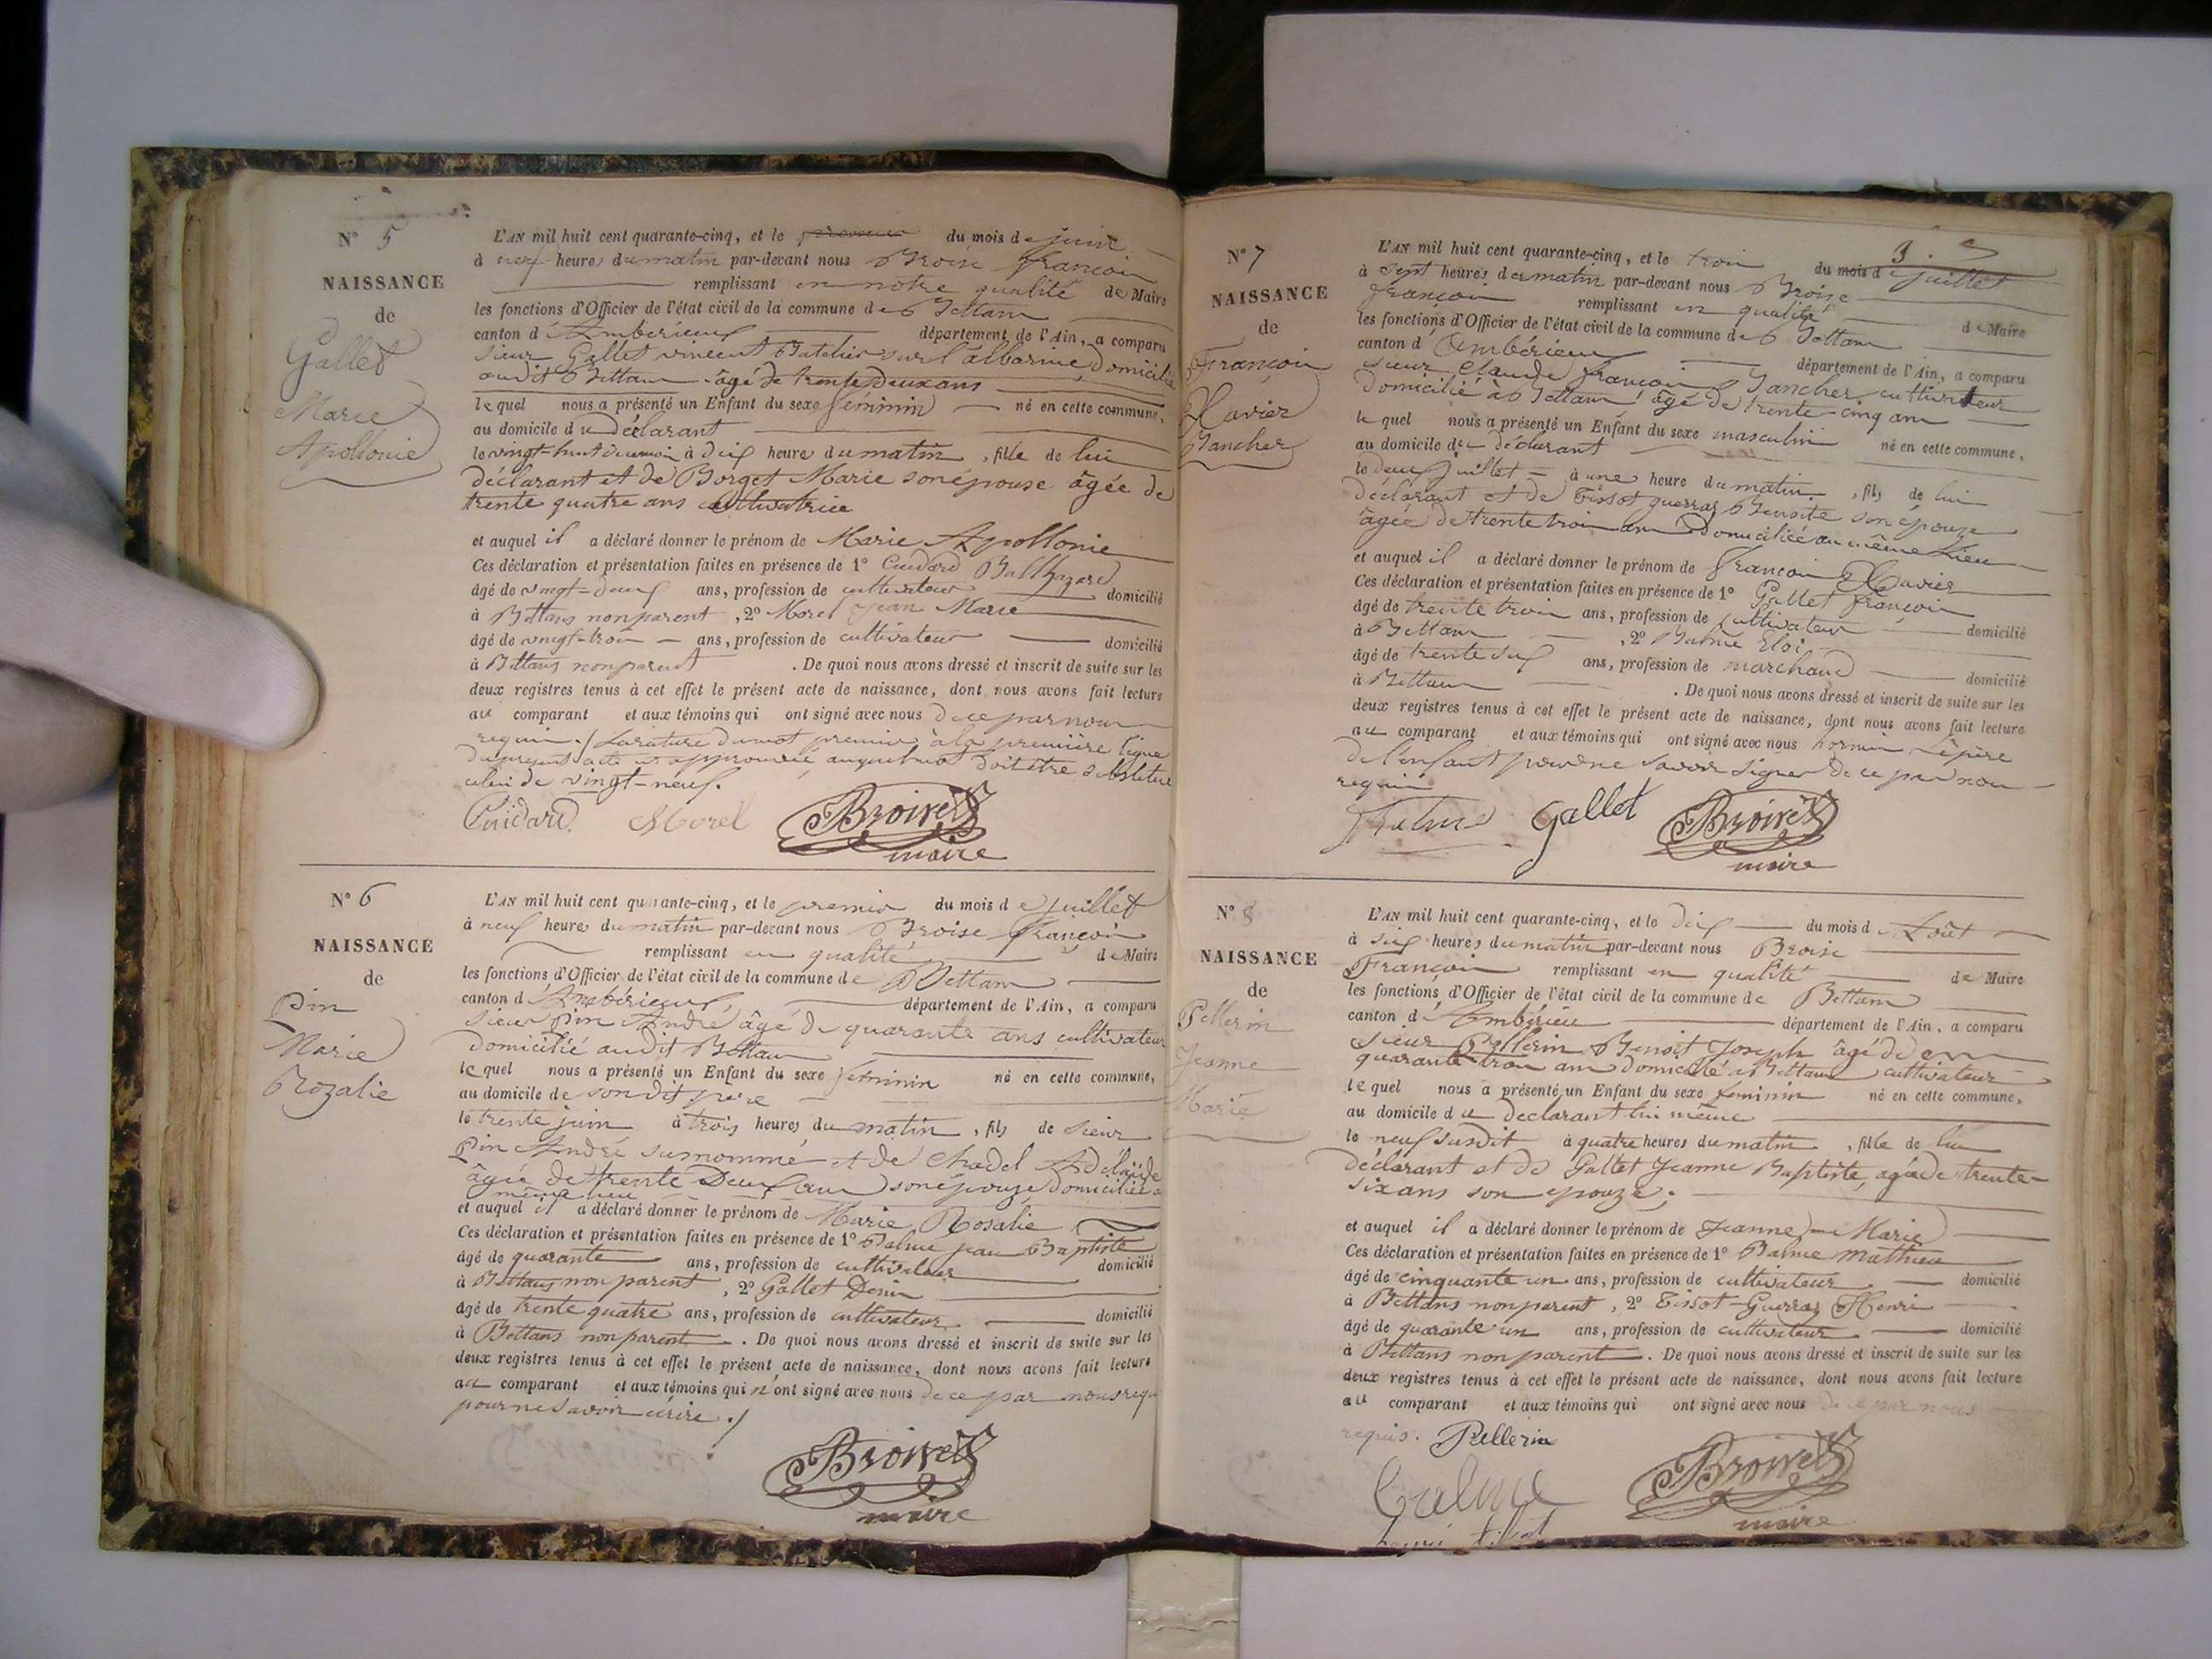 N° 5
NAISSANCE
de
Gallet
Marie
Apollonie
L'AN mil huit cent quarante-cinq, et le premier du mois de juin
à neuf heures du matin par-devant nous Broise françois
remplissant en notre qualité de Maire
les fonctions d'Officier de l'état civil de la commune de Bettans
canton d'Ambérieux département de l'Ain, a comparu
sieur Gallet vincent Batelier sur l'albarine domicilié
audit Bettans âgé de trente deux ans
lequel nous a présenté un Enfant du sexe féminin né en cette commune,
au domicile du déclarant
le vingt-huit du mois à dix heure du matin, fille de lui
déclarant et de Borget Marie son épouse âgée de
trente quatre ans cultivatrice
et auquel il a déclaré donner le prénom de Marie Apollonie
Ces déclaration et présentation faites en présence de 1° Cuidard Balthazard
âgé de vingt-deux ans, profession de cultivateur domicilié
à Bettans non parent, 2° Morel Jean Marie
âgé de vingt-trois ans, profession de cultivateur domicilié
à Bettans non parent. De quoi nous avons dressé et inscrit de suite sur les
deux registres tenus à cet effet le présent acte de naissance, dont nous avons fait lecture
au comparant et aux témoins qui ont signé avec nous de ce par nous
requis. / la rature du mot premier à la première ligne
du présent acte est approuvée auquel mot doit être substitué
celui de vingt-neuf.
Cuidard Morel Broise
maire
N° 6
NAISSANCE
de
Pin
Marie
Rozalie
L'AN mil huit cent quarante-cinq, et le premier du mois de juillet
à neuf heures du matin par-devant nous Broise françois
remplissant en qualité de Maire
les fonctions d'Officier de l'état civil de la commune de Bettans
canton d'Ambérieux département de l'Ain, a comparu
sieur Pin André âgé de quarante ans cultivateur
domicilié audit Bettans
lequel nous a présenté un Enfant du sexe feminin né en cette commune,
au domicile de son dit père
le trente juin à trois heures du matin, fils de sieur
Pin André surnommé et de Chadel Adélaïde
âgée de trente deux ans son épouze domiciliée a
même lieu
et auquel il a déclaré donner le prénom de Marie Rosalie
Ces déclaration et présentation faites en présence de 1° Balme jean Baptiste
âgé de quarante ans, profession de cultivateur domicilié
à Bettans non parent, 2° Gallet Denis
âgé de trente quatre ans, profession de cultivateur domicilié
à Bettans non parent. De quoi nous avons dressé et inscrit de suite sur les
deux registres tenus à cet effet le présent acte de naissance, dont nous avons fait lecture
au comparant et aux témoins qui n'ont signé avec nous de ce par nous requ
pour ne savoir écrire ./
Broise
maire
3.
N° 7
NAISSANCE
de
François
Xavier
Tancher
L'AN mil huit cent quarante-cinq, et le trois du mois de juillet
à sept heures du matin par-devant nous Broise
françois remplissant en qualité de Maire
les fonctions d'Officier de l'état civil de la commune de Bettans
canton d'Ambérieux département de l'Ain, a comparu
sieur Claude françois Tancher cultivateur
domicilié à Bettans âgé de trente-cinq ans
lequel nous a présenté un Enfant du sexe masculin né en cette commune,
au domicile du déclarant
le deux juillet à une heure du matin, fils de lui
déclarant et de Tissot guerraz Benoite son épouze
âgée de trente trois ans domiciliée au même lieu
et auquel il a déclaré donner le prénom de françois Xavier
Ces déclaration et présentation faites en présence de 1° Gallet françois
âgé de trente trois ans, profession de cultivateur domicilié
à Bettans, 2° Balme Eloi
âgé de trente six ans, profession de marchand domicilié
à Bettans. De quoi nous avons dressé et inscrit de suite sur les
deux registres tenus à cet effet le présent acte de naissance, dont nous avons fait lecture
au comparant et aux témoins qui ont signé avec nous hormis le père
de l'enfant pour ne savoir signer de ce par nous
requis
Balme Gallet Broise
maire
N° 8
NAISSANCE
de
Pellerin
Jeanne
Marie
L'AN mil huit cent quarante-cinq, et le dix du mois d'Août
à six heures du matin par-devant nous Broise
François remplissant en qualité de Maire
les fonctions d'Officier de l'état civil de la commune de Bettans
canton d'Ambérieu département de l'Ain, a comparu
sieur Pellerin Benoit Joseph âgé de
quarante trois ans domicilié à Bettans cultivateur
lequel nous a présenté un Enfant du sexe feminin né en cette commune,
au domicile du declarant lui même
le neuf susdit à quatre heures du matin, fille de lui
déclarant et de Gallet Jeanne Baptiste, agée de trente-
six ans son epouze;
et auquel il a déclaré donner le prénom de Jeanne Marie
Ces déclaration et présentation faites en présence de 1° Balme Mathieu
âgé de cinquante un ans, profession de cultivateur domicilié
à Bettans non parent, 2° Tissot-Guerraz Henri
âgé de quarante un ans, profession de cultivateur domicilié
à Bettans non parent. De quoi nous avons dressé et inscrit de suite sur les
deux registres tenus à cet effet le présent acte de naissance, dont nous avons fait lecture
au comparant et aux témoins qui ont signé avec nous de ce par nous
requis. Pellerin
Balme Broise
maire